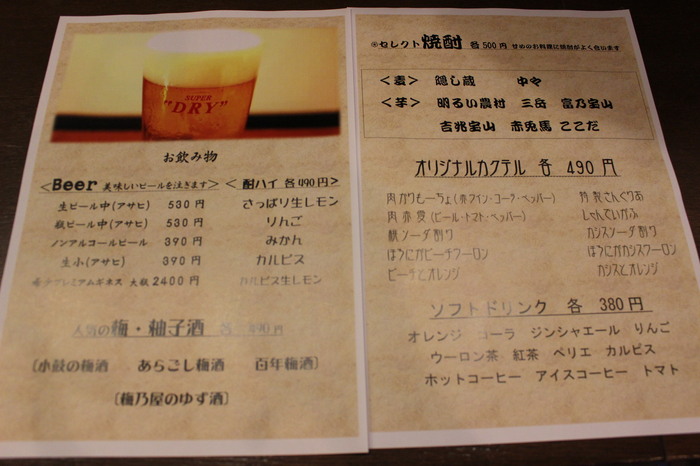 SUPER
"DRY"
お飲み物
＜Beer 美味しいビールを注ぎます＞
生ビール中(アサヒ) 530 円
瓶ビール中(アサヒ) 530 円
ノンアルコールビール 390 円
生小(アサヒ) 390 円
プレミアムギネス 大瓶 2400 円
＜酎ハイ 各490円＞
さっぱり生レモン
りんご
みかん
カルピス
カルピス生レモン
人気の梅・柚子酒 各 490 円
〔小鼓の梅酒 あらごし梅酒 百年梅酒〕
〔梅乃屋のゆず酒〕
セレクト焼酎 各500円 甘めのお料理に焼酎がよく合います
＜麦＞ 隠し蔵 中々
＜芋＞ 明るい農村 三岳 富乃宝山
吉兆宝山 赤兎馬 ここだ
オリジナルカクテル 各 490円
肉かりもーちょ(赤ワイン・コーク・ペッパー)
肉赤愛(ビール・トマト・ペッパー)
桃ソーダ割り
ほうにがピーチウーロン
ピーチとオレンジ
丹製さんぐりあ
しゃんでいがふ
カシスソーダ割り
ほうにがカシスウーロン
カシスとオレンジ
ソフトドリンク 各 380円
オレンジ コーラ ジンシャエール りんご
ウーロン茶 紅茶 ペリエ カルピス
ホットコーヒー アイスコーヒー トマト